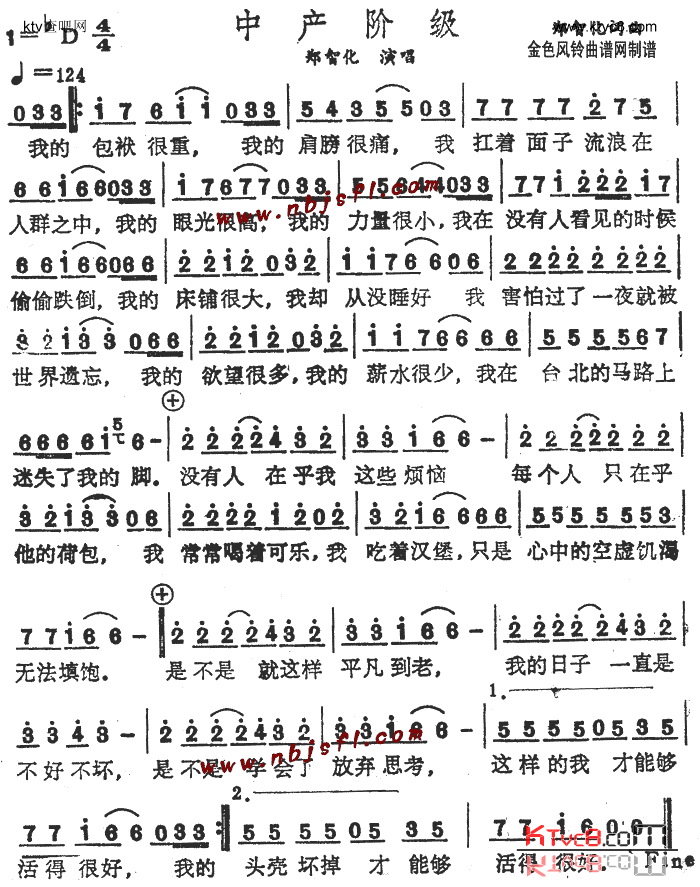 ktv查吧网
www.ktvc8.com
1=♭D 4/4
中产阶级
♩=124
郑智化 演唱
金色风铃曲谱网制谱
033 : 1 7 6 1 1 0 3 3 5 4 3 5 5 0 3 7 7 7 7 2 7 5
我的 包袱很重，我的肩膀很痛，我 扛着面子流浪在
6 6 1 6 6 0 3 3 1 7 6 7 7 0 3 3 5 5 6 4 4 0 3 3 7 7 1 2 2 2 1 7
人群之中，我的 眼光很高，我的 力量很小，我在 没有人看见的时候
www.nbjsfl.com
6 6 1 6 6 0 6 6 2 2 1 2 0 3 2 1 1 7 6 6 0 6 2 2 2 2 2 1 2 2
偷偷跌倒，我的 床铺很大，我却 从没睡好 我 害怕过了一夜就被
3 2 1 3 3 0 6 6 2 2 1 2 0 3 3 1 1 7 6 6 6 6 5 5 5 5 5 6 7
世界遗忘，我的 欲望很多，我的 薪水很少，我在 台北的马路上
6 6 6 6 6 1 6 - 2 2 2 2 4 3 2 3 3 1 6 6 - 2 2 2 2 2 2 2
迷失了我的脚。没有人 在乎我 这些烦恼 每个人 只在乎
3 2 1 3 3 0 6 2 2 2 2 1 2 0 2 3 2 1 6 6 6 6 5 5 5 5 5 5 5
他的荷包，我 常常喝着可乐，我 吃着汉堡，只是 心中的空虚饥渴
7 7 1 6 6 - 2 2 2 2 4 3 2 3 3 1 6 6 - 2 2 2 2 2 4 3 2
无法填饱。 是不是 就这样 平凡到老， 我的日子 一直是
1.
3 3 4 3 - 2 2 2 2 4 3 2 3 3 1 6 6 - 5 5 5 5 0 5 3 5
不好不坏， 是不是 学会了 放弃思考， 这样的我 才能够
www.nbjsfl.com
2.
7 7 1 6 6 0 3 3 : 5 5 5 5 0 5 3 5 7 7 1 6 0
活得很好， 我的 头壳坏掉 才能够 活得 很好。 Fine
KTvc8.com